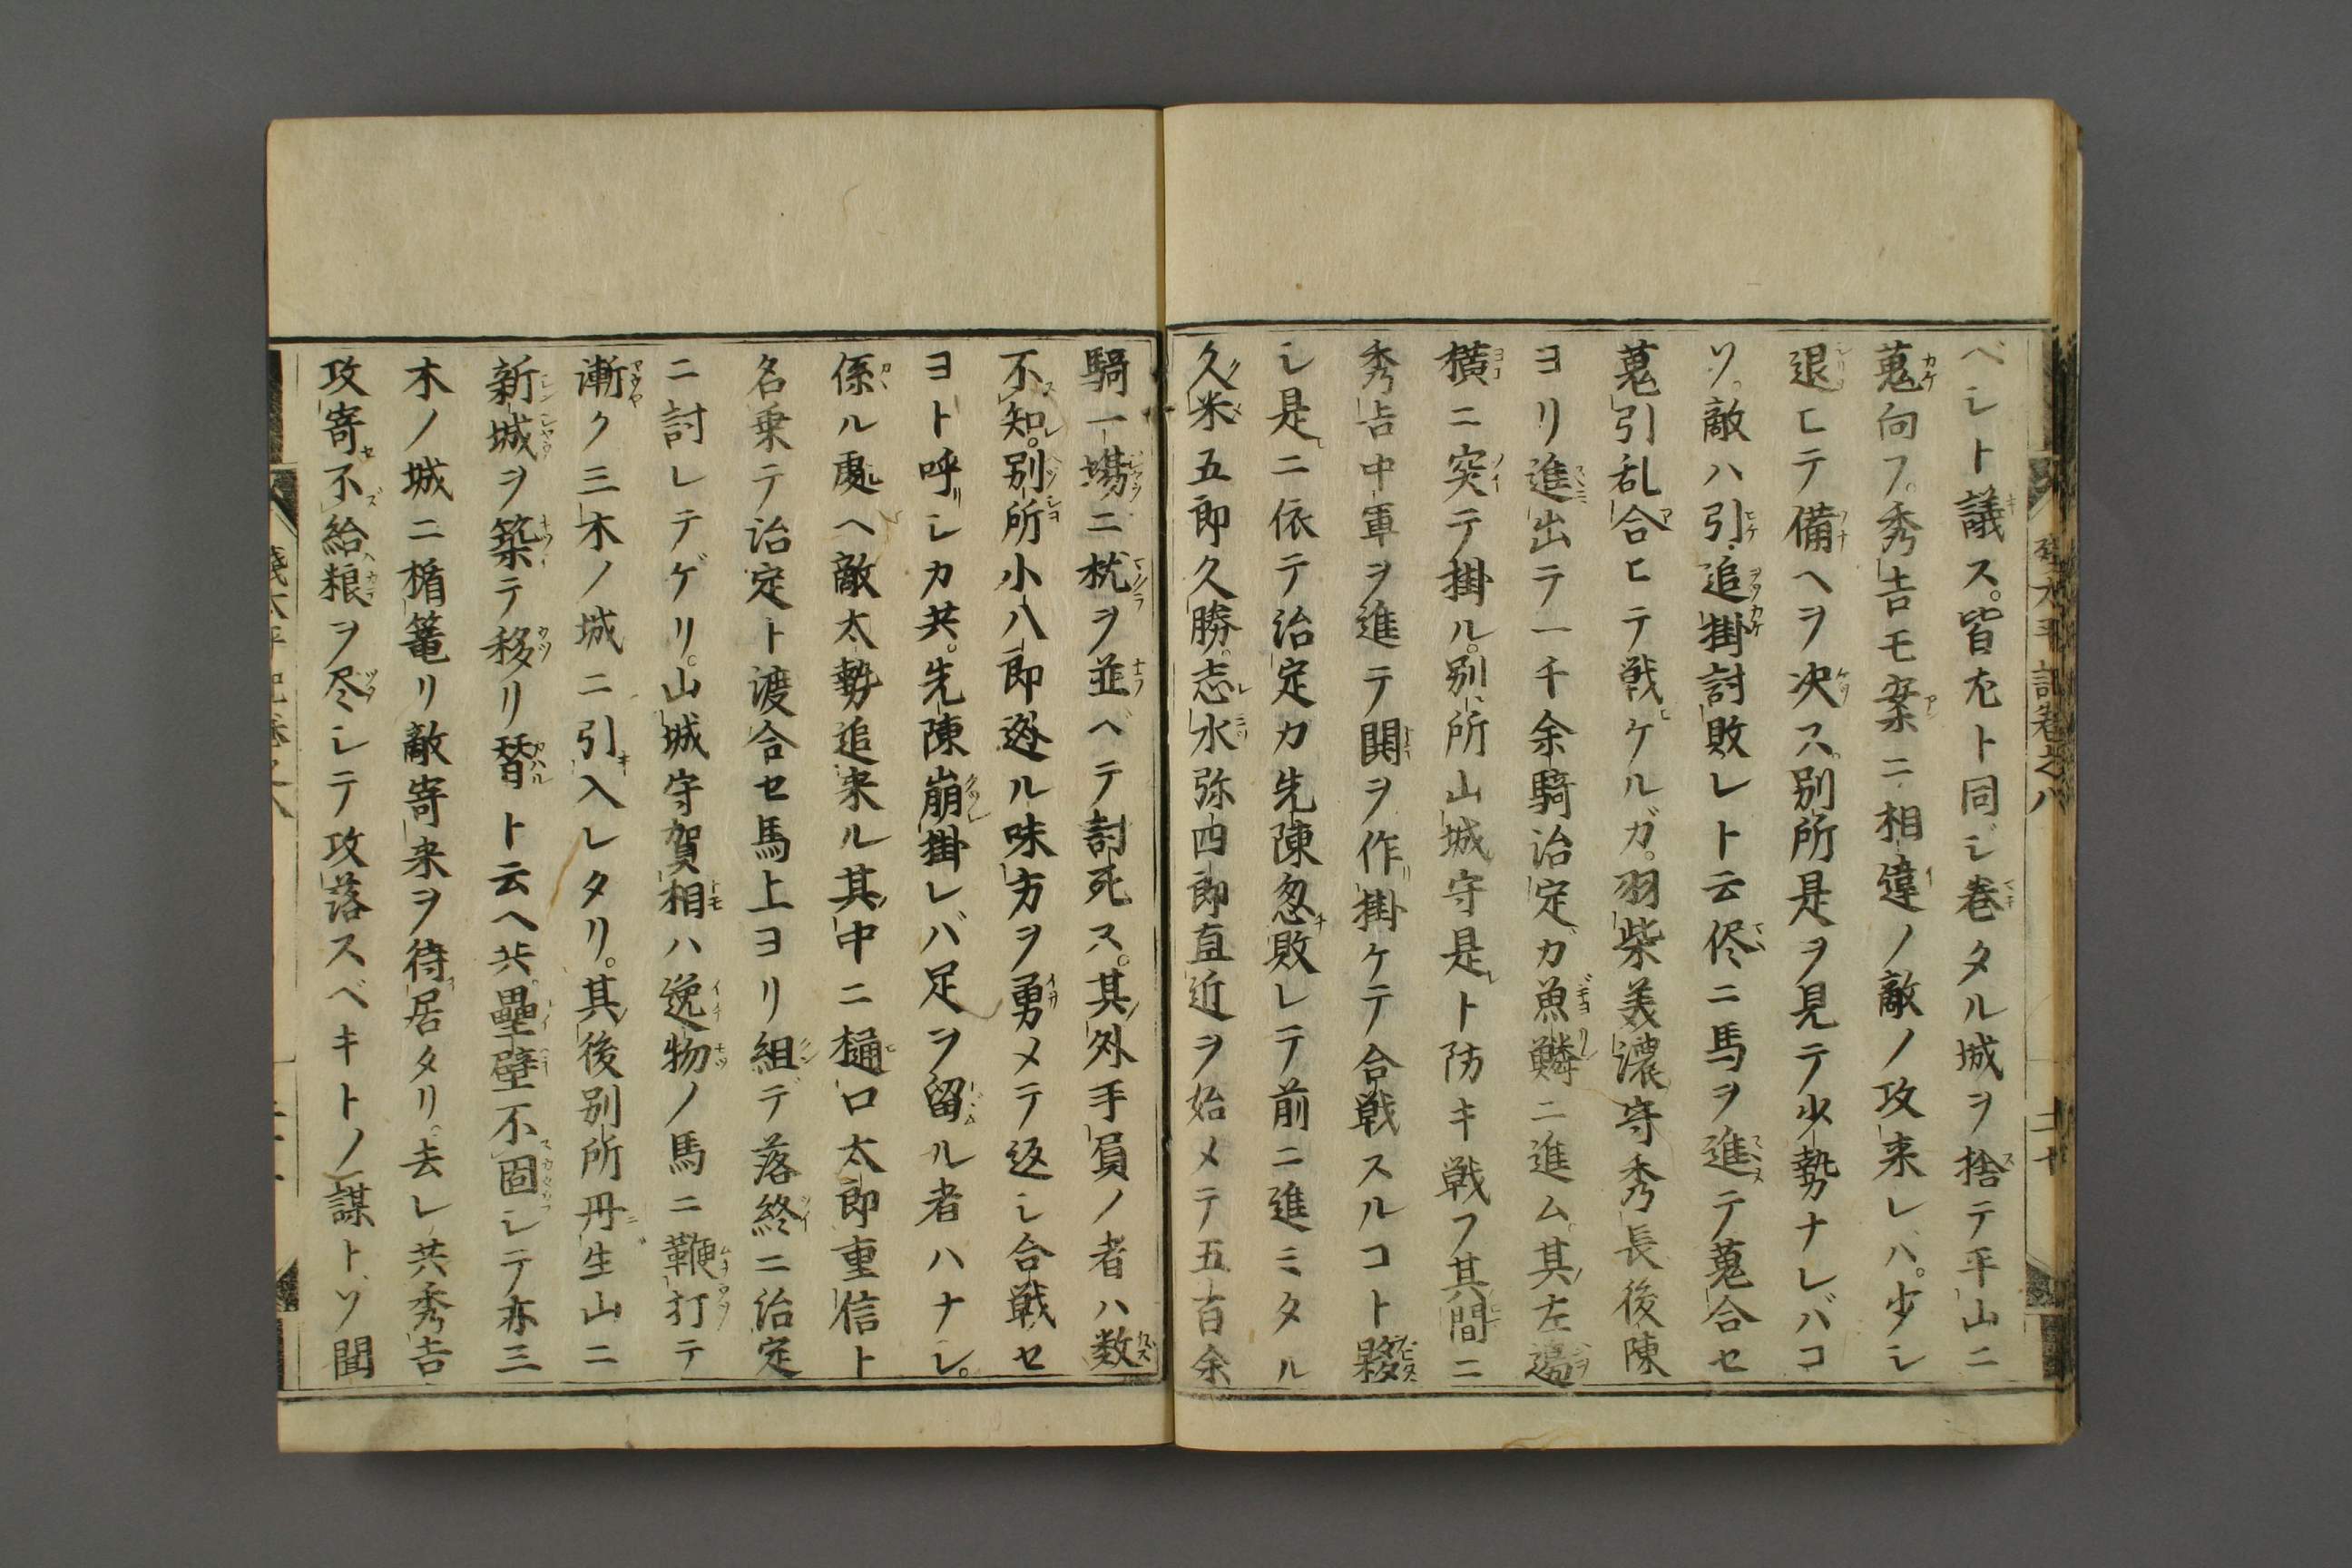 ベシト議ス。皆尤ト同ジ巻タル城ヲ捨テ平山ニ
蒐向フ。秀吉モ案ニ相違ノ敵ノ攻来レバ。少シ
退ヒテ備ヘヲ決ス。別所是ヲ見テ少勢ナレバコ
ソ。敵ハ引。追掛討敗レト云侭ニ馬ヲ進テ蒐合セ
蒐引乱合ヒテ戦ケルガ。羽柴美濃守秀長後陳
ヨリ進出テ一千余騎治定ガ魚鱗ニ進ム。其左邉
横ニ突テ掛ル。別所山城守是ト防キ戦フ其間ニ
秀吉中軍ヲ進テ鬨ヲ作掛ケテ合戦スルコト夥
シ是ニ依テ治定カ先陳忽敗レテ前ニ進ミタル
久米五郎久勝。志水弥四郎直近ヲ始メテ五百余
騎一場ニ枕ヲ並ベテ討死ス。其外手負ノ者ハ数
不知。別所小八郎逃ル味方ヲ勇メテ返シ合戦セ
ヨト呼シカ共。先陳崩掛レバ足ヲ留ル者ハナシ。
係ル處ヘ敵太勢追来ル其中ニ樋口太郎重信ト
名乗テ治定ト渡合セ馬上ヨリ組デ落終ニ治定
ニ討レテゲリ。山城守賀相ハ逸物ノ馬ニ鞭打テ
漸ク三木ノ城ニ引入レタリ。其後別所丹生山ニ
新城ヲ築テ移リ替ト云ヘ共。壘壁不固シテ亦三
木ノ城ニ楯篭リ敵寄来ヲ待居タリ。去レ共秀吉
攻寄不給粮ヲ尽シテ攻落スベキトノ謀トソ聞